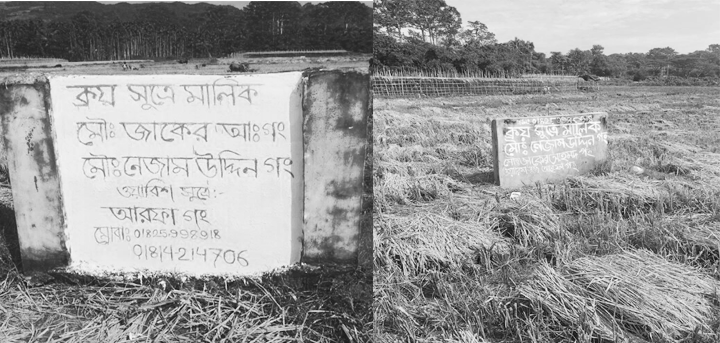 ক্রয় সুত্রে মালিক
মৌঃ জাকের আঃগং
মৌঃনেজাম উদ্দিন গং
ওয়ারিশ সুত্রে:-
আরফা গং
মোবাঃ 01825-998918
01814-214706
ক্রয় সুত্রে মালিক
মৌঃ নেজাম উদ্দিন গং